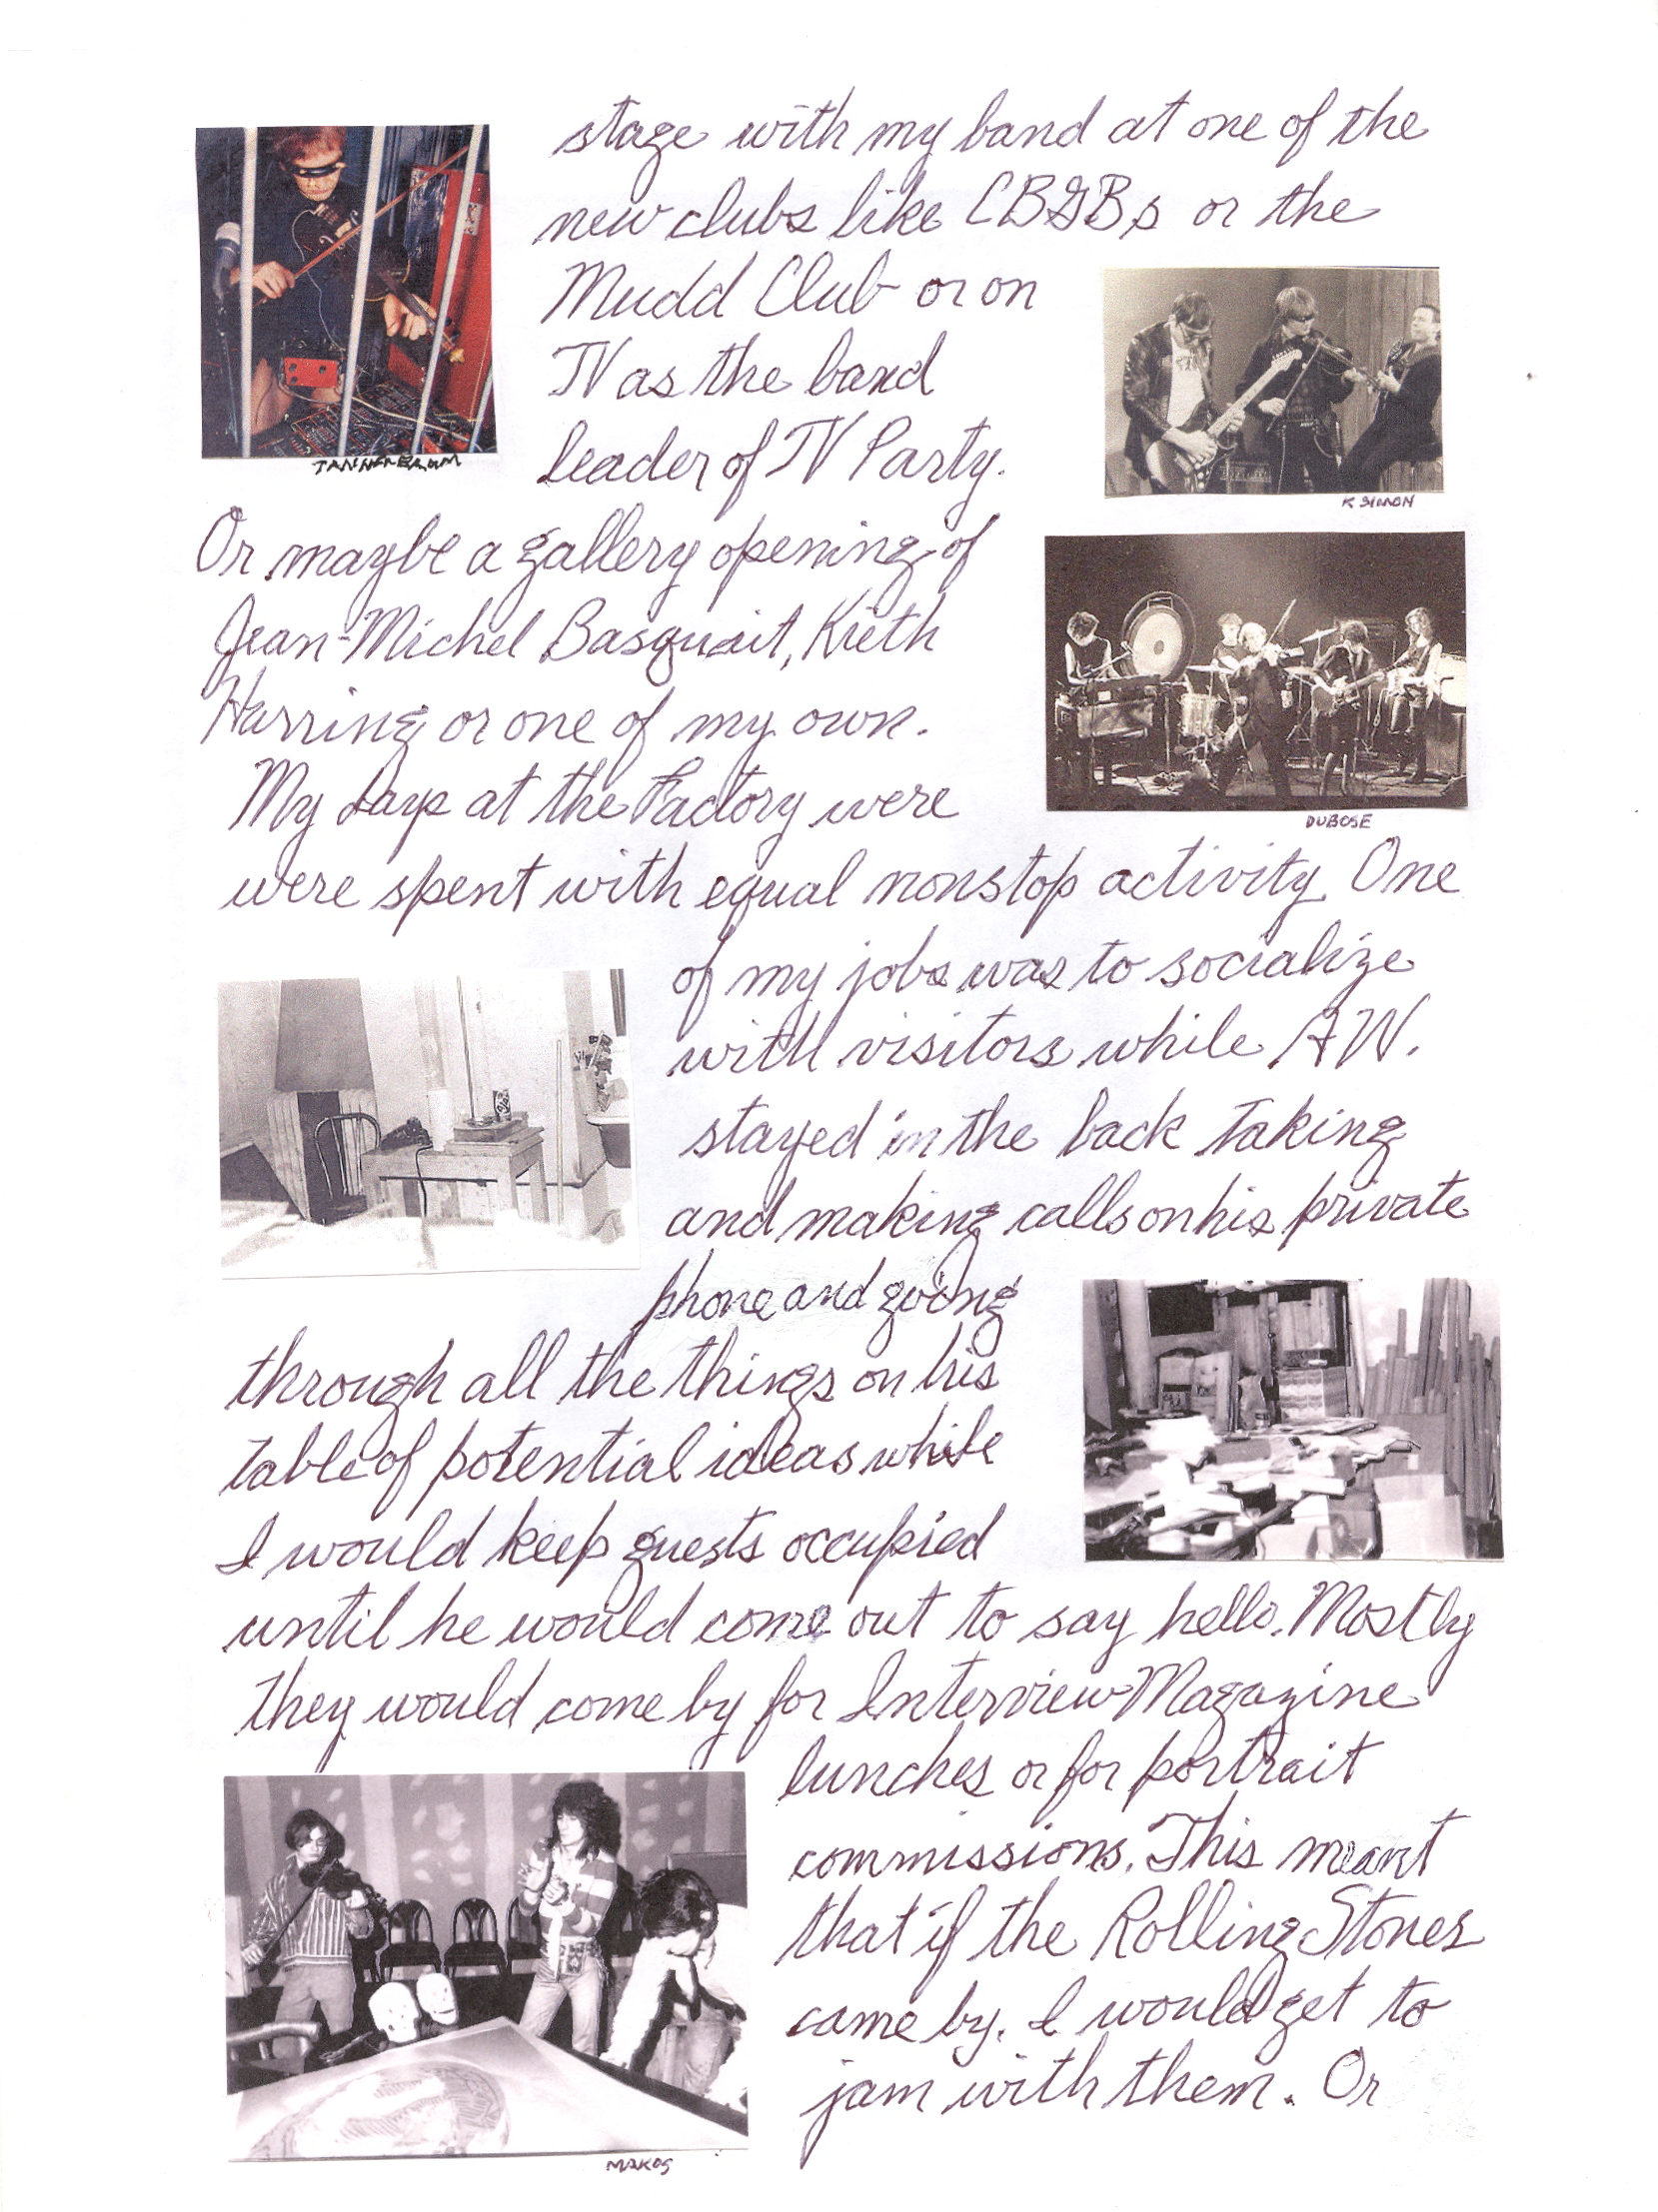 stage with my band at one of the
new clubs like CBGBs or the
Mudd Club or on
TV as the band
leader of TV Party.
TANNENBAUM
K SIMON
Or maybe a gallery opening of
Jean-Michel Basquait, Kieth
Harring or one of my own.
My days at the Factory were
DUBOSE
were spent with equal nonstop activity. One
of my jobs was to socialize
with visitors while AW.
stayed in the back taking
and making calls on his private
phone and going
through all the things on his
table of potential ideas while
I would keep guests occupied
until he would come out to say hello. Mostly
they would come by for Interview Magazine
lunches or for portrait
commissions. This meant
that if the Rolling Stones
came by. I would get to
jam with them. Or
MAKOS